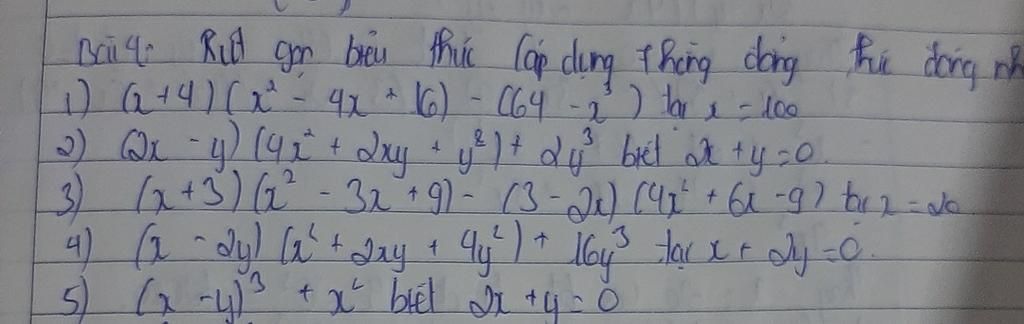 Bài 4: Rút gọn biểu thức (áp dụng hằng đẳng thức đáng nh
1) (x+4)(x² - 4x + 16) - (64 - x³) tại x = 100
2) (2x - y)(4x² + 2xy + y²) + 2y³ biết 2x + y = 0
3) (x+3)(x² - 3x + 9) - (3 - 2x)(4x² + 6x - 9) tại x = 20
4) (x - 2y)(x² + 2xy + 4y²) + 16y³ tại x + 2y = 0.
5) (x - y)³ + x² biết 2x + y = 0